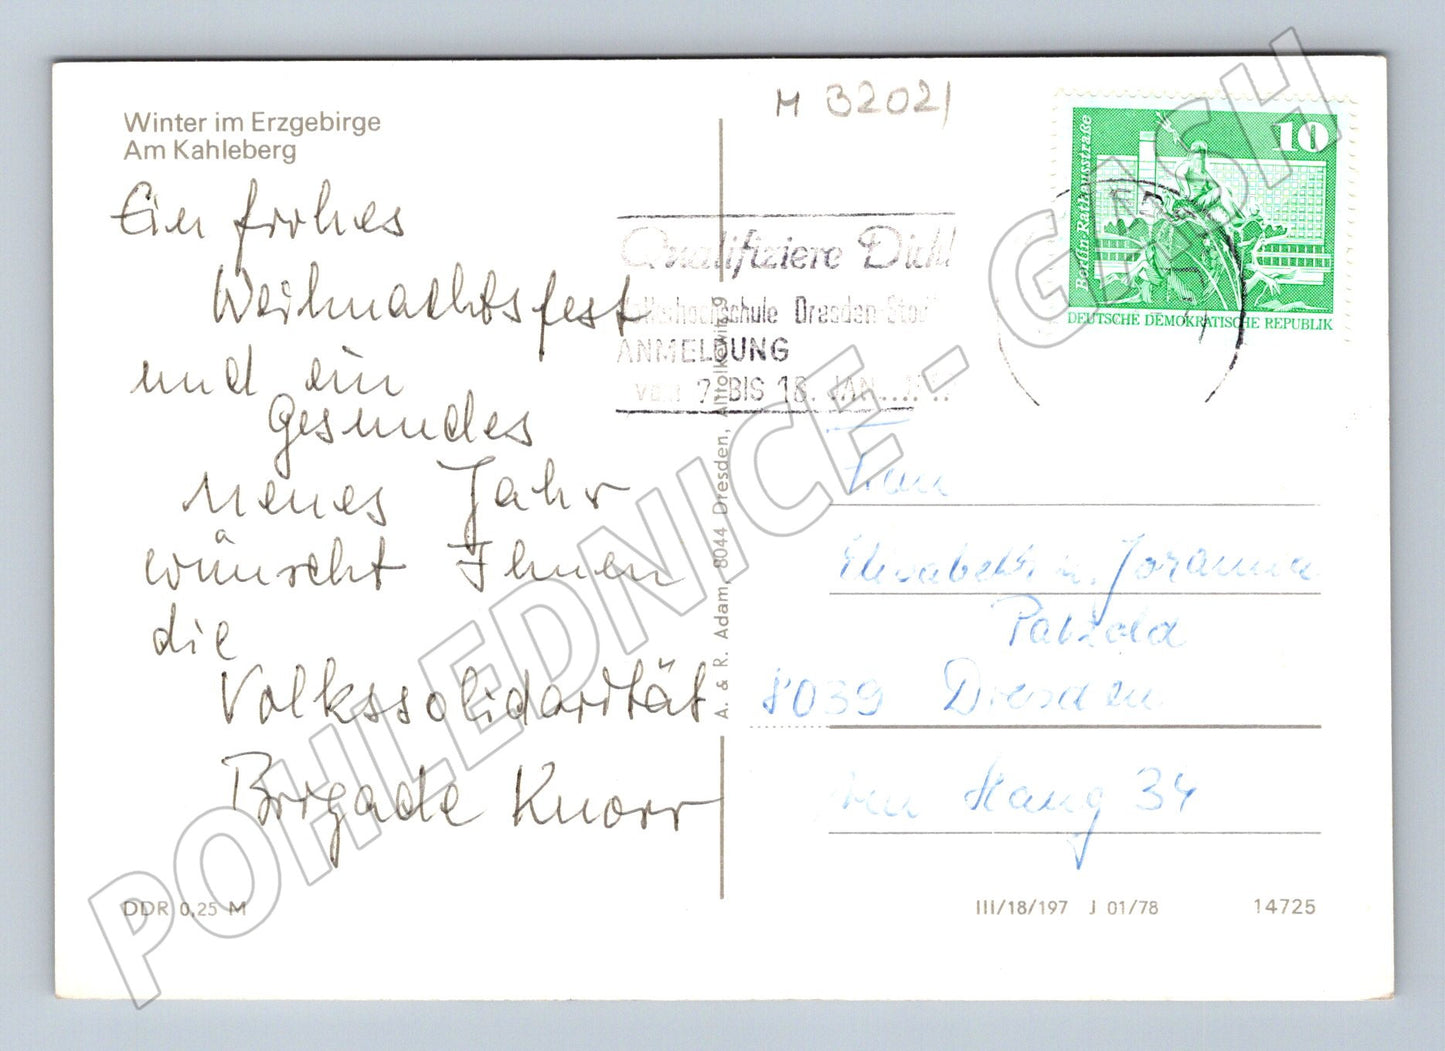 Winter im Erzgebirge
Am Kahleberg
Ein frohes
Weihnachtsfest
und ein
gesundes
neues Jahr
wünscht Ihnen
die
Volkssolidarität
Brigade Knorr
DDR 0,25 M
M 32021
Qualifiziere Dich!
Volkshochschule Dresden-Stadt
ANMELDUNG
VOM 7. BIS 18. JAN.
A. & R. Adam, 8044 Dresden, Altolkewitz 9
10
Berlin-Rathausstraße
DEUTSCHE DEMOKRATISCHE REPUBLIK
Elisabeth u. Johanna
Patzold
8039 Dresden
Am Hang 34
III/18/197 J 01/78
14725
POHLEDNICE - GASH